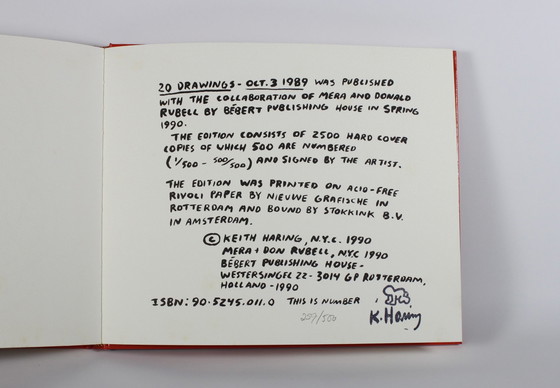 20 DRAWINGS - OCT. 3 1989 WAS PUBLISHED
WITH THE COLLABORATION OF MERA AND DONALD
RUBELL BY BÉBERT PUBLISHING HOUSE IN SPRING
1990.
THE EDITION CONSISTS OF 2500 HARD COVER
COPIES OF WHICH 500 ARE NUMBERED
(1/500 - 500/500) AND SIGNED BY THE ARTIST.
THE EDITION WAS PRINTED ON ACID-FREE
RIVOLI PAPER BY NIEUWE GRAFISCHE IN
ROTTERDAM AND BOUND BY STOKKINK B.V.
IN AMSTERDAM.
© KEITH HARING, N.Y.C. 1990
MERA + DON RUBELL, NYC 1990
BÉBERT PUBLISHING HOUSE -
WESTERSINGEL 22 - 3014 GP ROTTERDAM,
HOLLAND - 1990
ISBN: 90.5245.011.0 THIS IS NUMBER
207/500
K. Haring